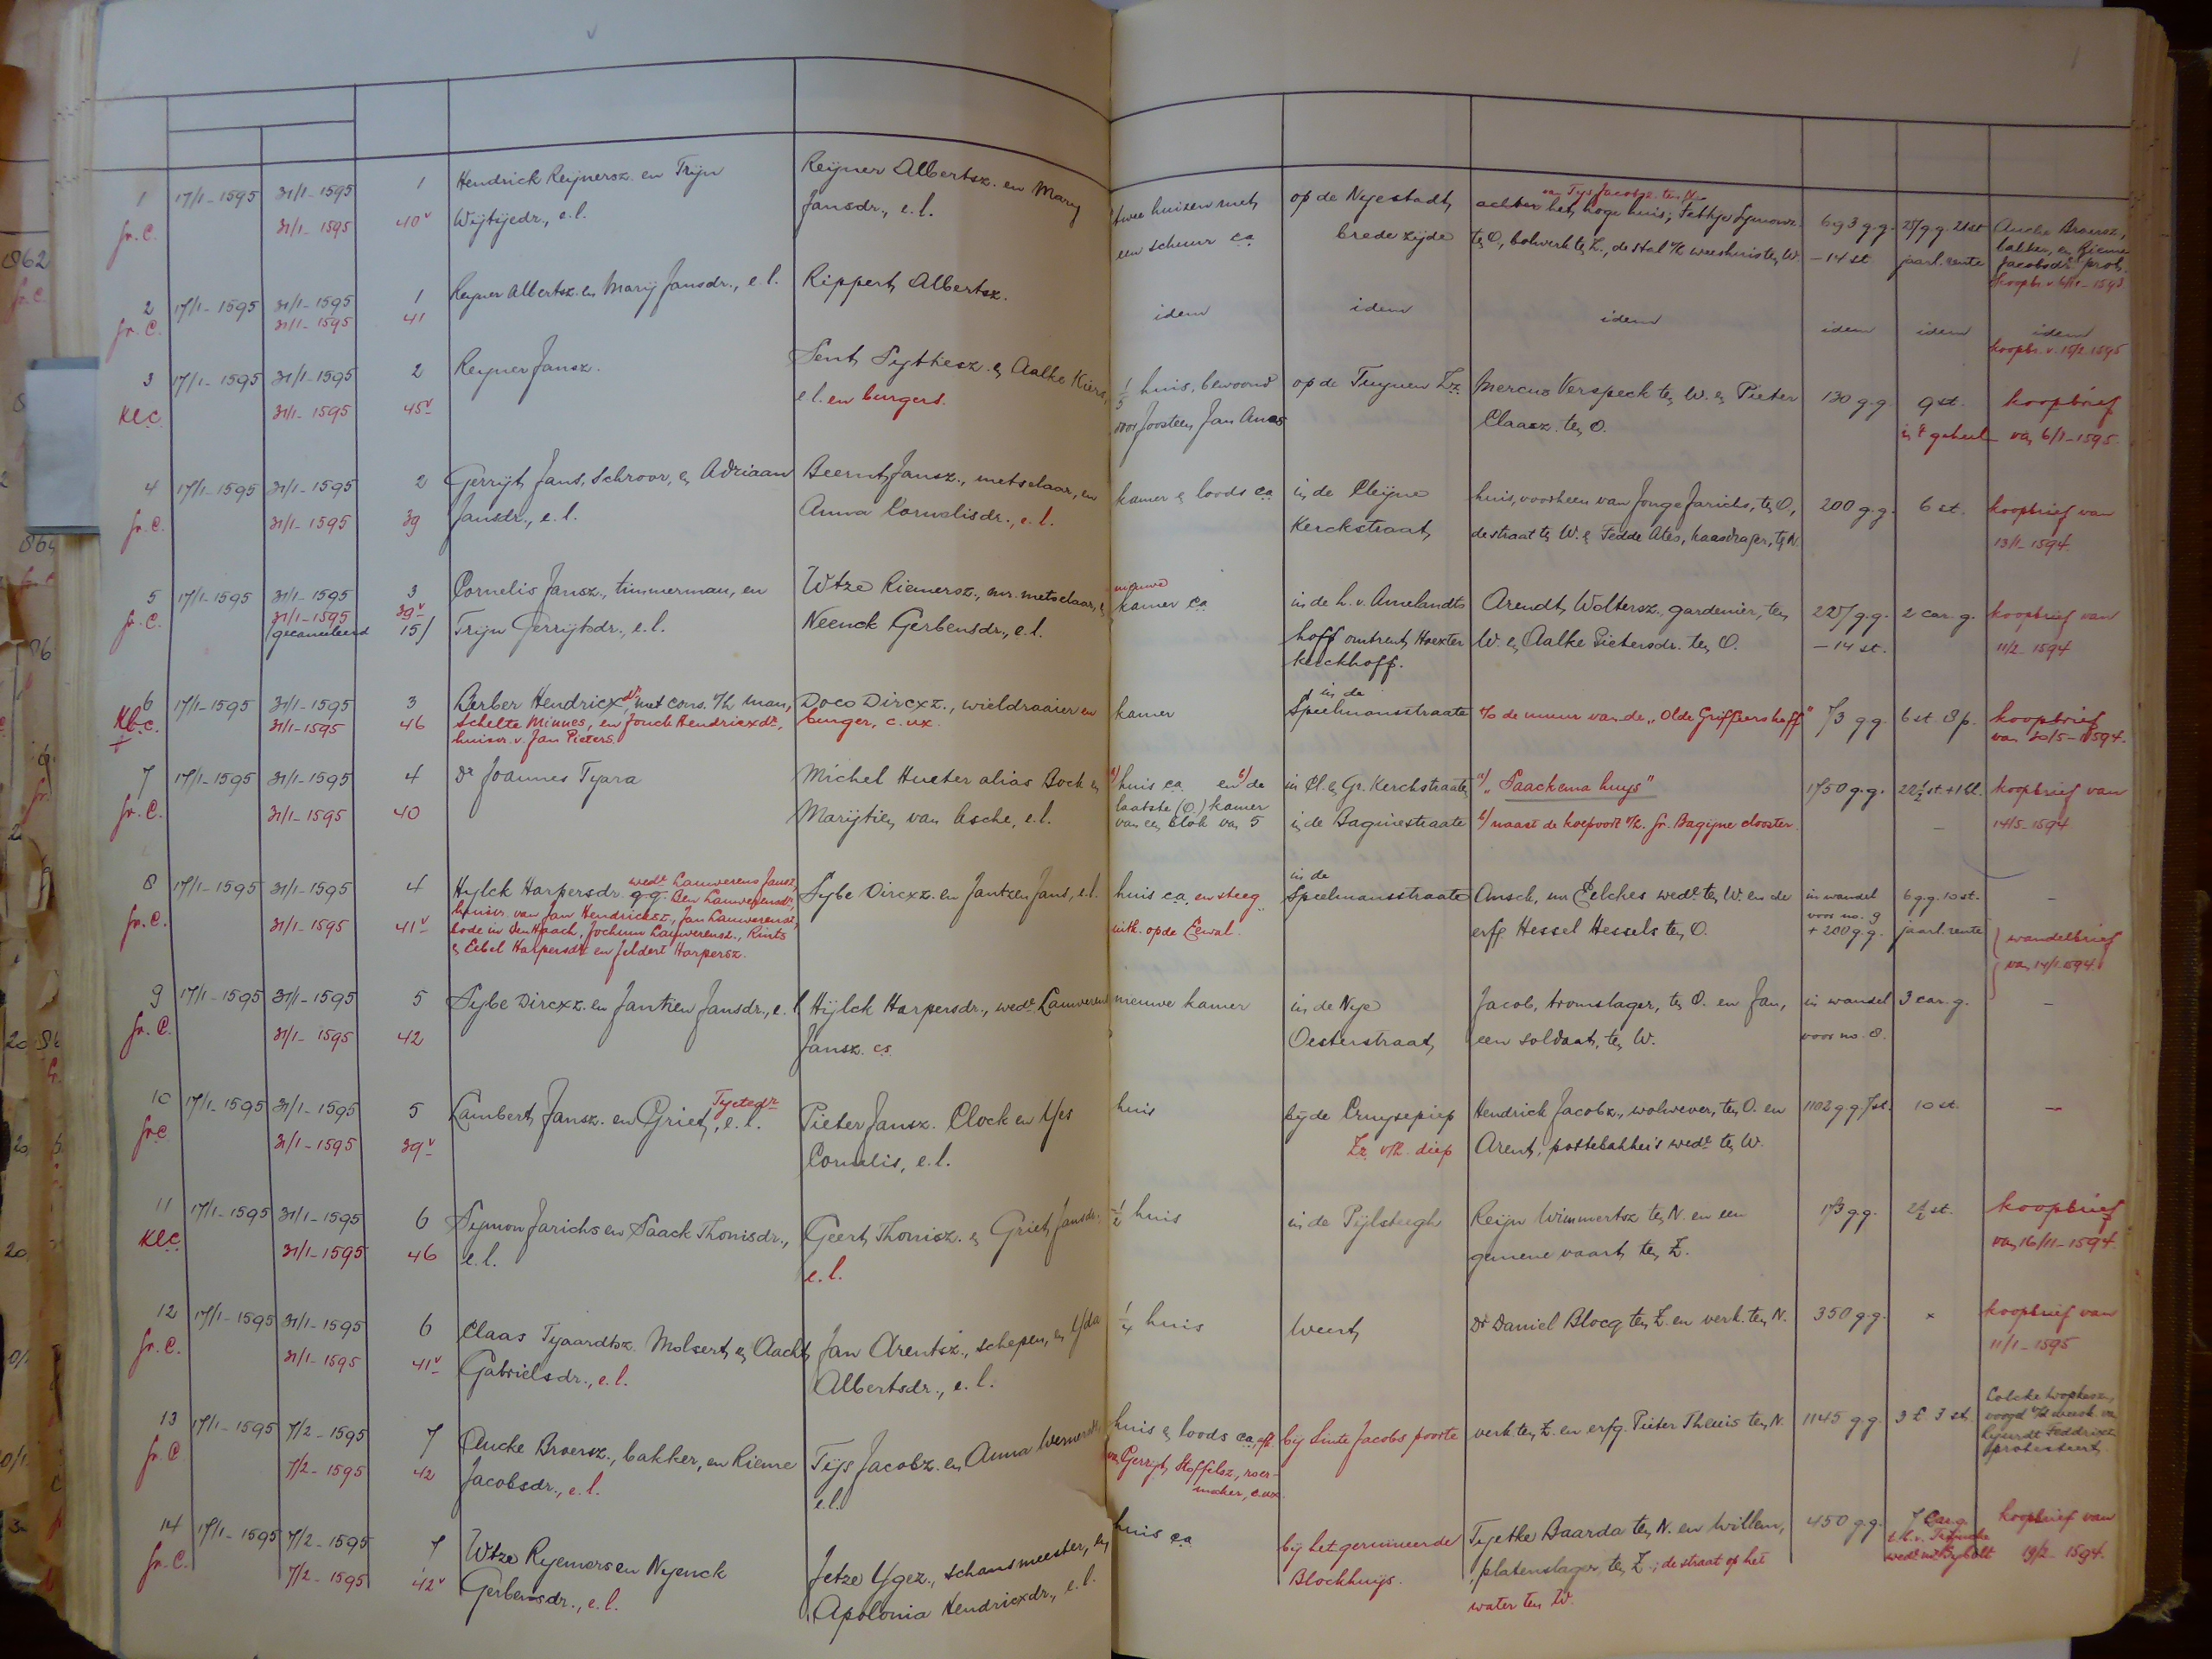 1 17/1-1595 31/1-1595 1 Hendrick Reijnersz. en Trijn Reijner Albertsz. en Marij twee huizen met op de Nyestadt van Tijs Jacobsz. ten N. achter het hoge huis; Tettje Symonsz. 693 g.g. 28 st
fr. C. 31/1-1595 40v Wijtijedr., e.l. Jansdr., e.l. een schuur ca brede zijde ten O, bolwerk ten Z., de stal v/h weeshuis ten W. -14 st jaarl. rente Aucke Broersz., bakker, en Rieme Jacobsdr. prot.
koopbr. v. 6/11-1593
2 17/1-1595 31/1-1595 1 Reyner Albertsz. en Marij Jansdr., e.l. Rippert Albertsz. idem idem idem idem idem idem
fr. C. 31/1-1595 41 koopbr. v. 15/2-1595
3 17/1-1595 31/1-1595 2 Reyner Jansz. Sent Sytthiesz. en Aalke Kiers, 1/5 huis, bewoond op de Tuynen Zz. Mercus Verspeck ten W. en Pieter 130 g.g. 9 st. koopbrief
KLC 31/1-1595 45v e.l. en burgers. door Joosten Jan Anes Claasz. ten O. in 't geheel van 6/1-1595.
4 17/1-1595 31/1-1595 2 Gerrijt Jans, schroor, en Adriaan Beernt Jansz., metselaar, en kamer en loods ca in de Cleijne huis, voorheen van Jonge Jarichs, ten O, 200 g.g. 6 st. koopbrief van
fr. C. 31/1-1595 39 Jansdr., e.l. Anna Cornelisdr., e.l. Kerckstraat de straat ten W. en Fedde Ates, kaasdrager, ten N. 13/1-1594.
5 17/1-1595 31/1-1595 3 Cornelis Jansz., timmerman, en Wtze Riemersz., mr. metselaar, en nieuwe kamer ca in de h. v. Amelandts Arendt Woltersz., gardenier, ten 227 g.g. 2 car. g. koopbrief van
fr. C. 31/1-1595 39v
gecanceleerd 151 Trijn Gerrijtsdr., e.l. Neenck Gerbensdr., e.l. hoff omtrent Hoexter W. en Aalke Pietersdr. ten O. -14 st. 11/2-1594
kerckhoff.
6 17/1-1595 31/1-1595 3 Berber Hendricxdr met cons. v/h man, Doco Dircxz., wieldraaier en kamer in de Speelmansstraate t/o de muur van de "Olde Griffiers hoff" 73 g.g. 6 st. 8 p. koopbrief
Kl.c. 31/1-1595 46 Schelte Minnes, en Jouck Hendricxdr., burger, c.ux. van 20/5-1594.
huisvr. v. Jan Pieters.
7 17/1-1595 31/1-1595 4 Dr Joannes Tyara Michel Hueter alias Bock en a/ huis ca en b/ de in Cl. en Gr. Kerckstraate a/ "Saackema huys" 1750 g.g. 22½ st. + 1 bl. koopbrief van
fr. C. 31/1-1595 40 Marijtien van Assche, e.l. laatste (O.) kamer van een blok van 5 in de Baginestraate b/ naast de koepoort v/h. gr. Bagijne clooster. 14/5-1594
8 17/1-1595 31/1-1595 4 Hylck Harpersdr. wede Lauwerens Jansz, Sybe Dircxz. en Jantzen Jans, e.l. huis ca, en steeg in de Speelmansstraate Amsch. mr. Eelches wede ten W. en de in wandel 6 g.g. 10 st. -
g.g. Ben Lauwerensdr,
fr. C. 31/1-1595 41v huisvr. van Jan Hendricksz., Jan Lauwerensz, uitk. op de Eewal. erfg. Hessel Hessels ten O. voor no. 9 + 200 g.g. jaarl. rente wandelbrief
bode in den Haach, Jochum Lauwerensz., Rints van 14/1-1594.
& Eebel Harpersdr. en Jeldert Harpersz.
9 17/1-1595 31/1-1595 5 Sybe Dircxz. en Jantien Jansdr., e.l. Hijlck Harpersdr., wede Lauwerens nieuwe kamer in de Nye Jacob, tromslager, ten O. en Jan, in wandel 3 car. g. -
fr. C. 31/1-1595 42 Jansz. cs. Oesterstraat een soldaat, ten W. voor no. 8.
10 17/1-1595 31/1-1595 5 Lambert Jansz. en Griet Tyetsdr, e.l. Pieter Jansz. Clock en Yes huis bij de Cruysepiep Hendrick Jacobz., wolwever, ten O. en 1102 g.g. 7 st. 10 st. -
fr.C 31/1-1595 39v Cornelis, e.l. Zz. v/h. diep Arent, pottebakkers wede ten W.
11 17/1-1595 31/1-1595 6 Symon Jarichs en Saack Thonisdr., Geert Thonisz. en Griet Jansdr., ½ huis in de Pijlsteegh Reijn Wimmertsz ten N. en een 173 g.g. 2½ st. koopbrief
KLC 31/1-1595 46 e.l. e.l. gemene vaart ten Z. van 16/11-1594.
12 17/1-1595 31/1-1595 6 Claas Tjaardtsz. Molsert en Aacht Jan Arentsz., schepen, en Yda ¼ huis Weert Dr Daniel Blocq ten Z. en verk. ten N. 350 g.g. x koopbrief van
fr. C. 31/1-1595 41v Gabrielsdr., e.l. Albertsdr., e.l. 11/1-1595
13 17/1-1595 7/2-1595 7 Aucke Broersz., bakker, en Rieme Tijs Jacobz. en Anna Wernersdr, huis en loods ca, bij Sinte Jacobs poorte verk. ten Z. en erfg. Pieter Theuis ten N. 1145 g.g. 3 £ 3 st.
fr. C 7/2-1595 42 Jacobsdr., e.l. e.l. van Gerrijt Stoffelsz, roermaker, c.ux. protesteert.
14 17/1-1595 7/2-1595 7 Wtze Ryemers en Nyenck Jetze Ygez., schansmeester, en huis ca bij het geruineerde Tjetke Baarda ten N. en Willem, 450 g.g. 7 Car.g. koopbrief van
fr. C. 7/2-1595 42v Gerbensdr., e.l. Apolonia Hendricxdr., e.l. Blockhuijs. platenslager, ten Z.; de straat op het 19/2-1594.
water ten W.